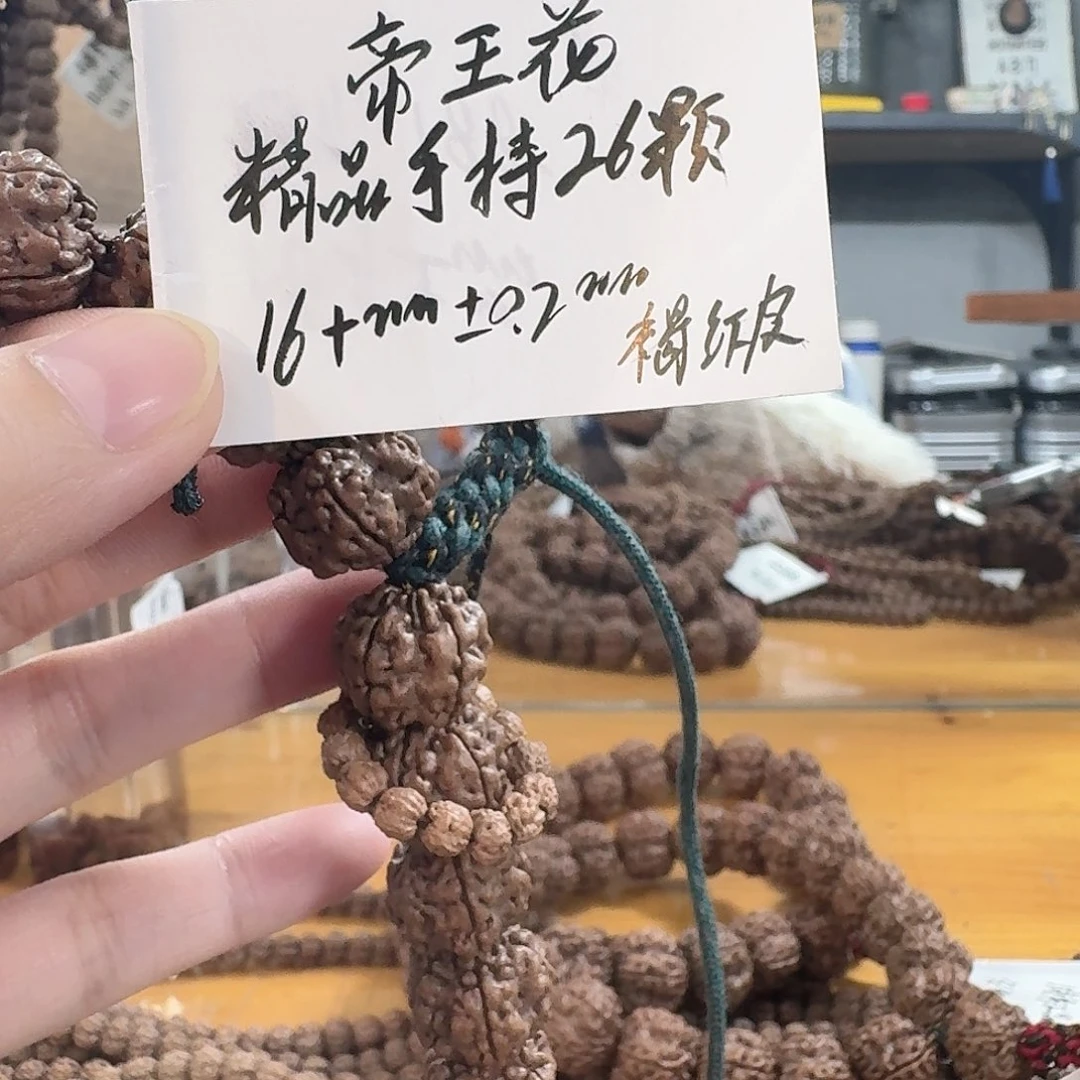 帝王花
精品手持26颗
16+mm±0.2mm
橘红皮